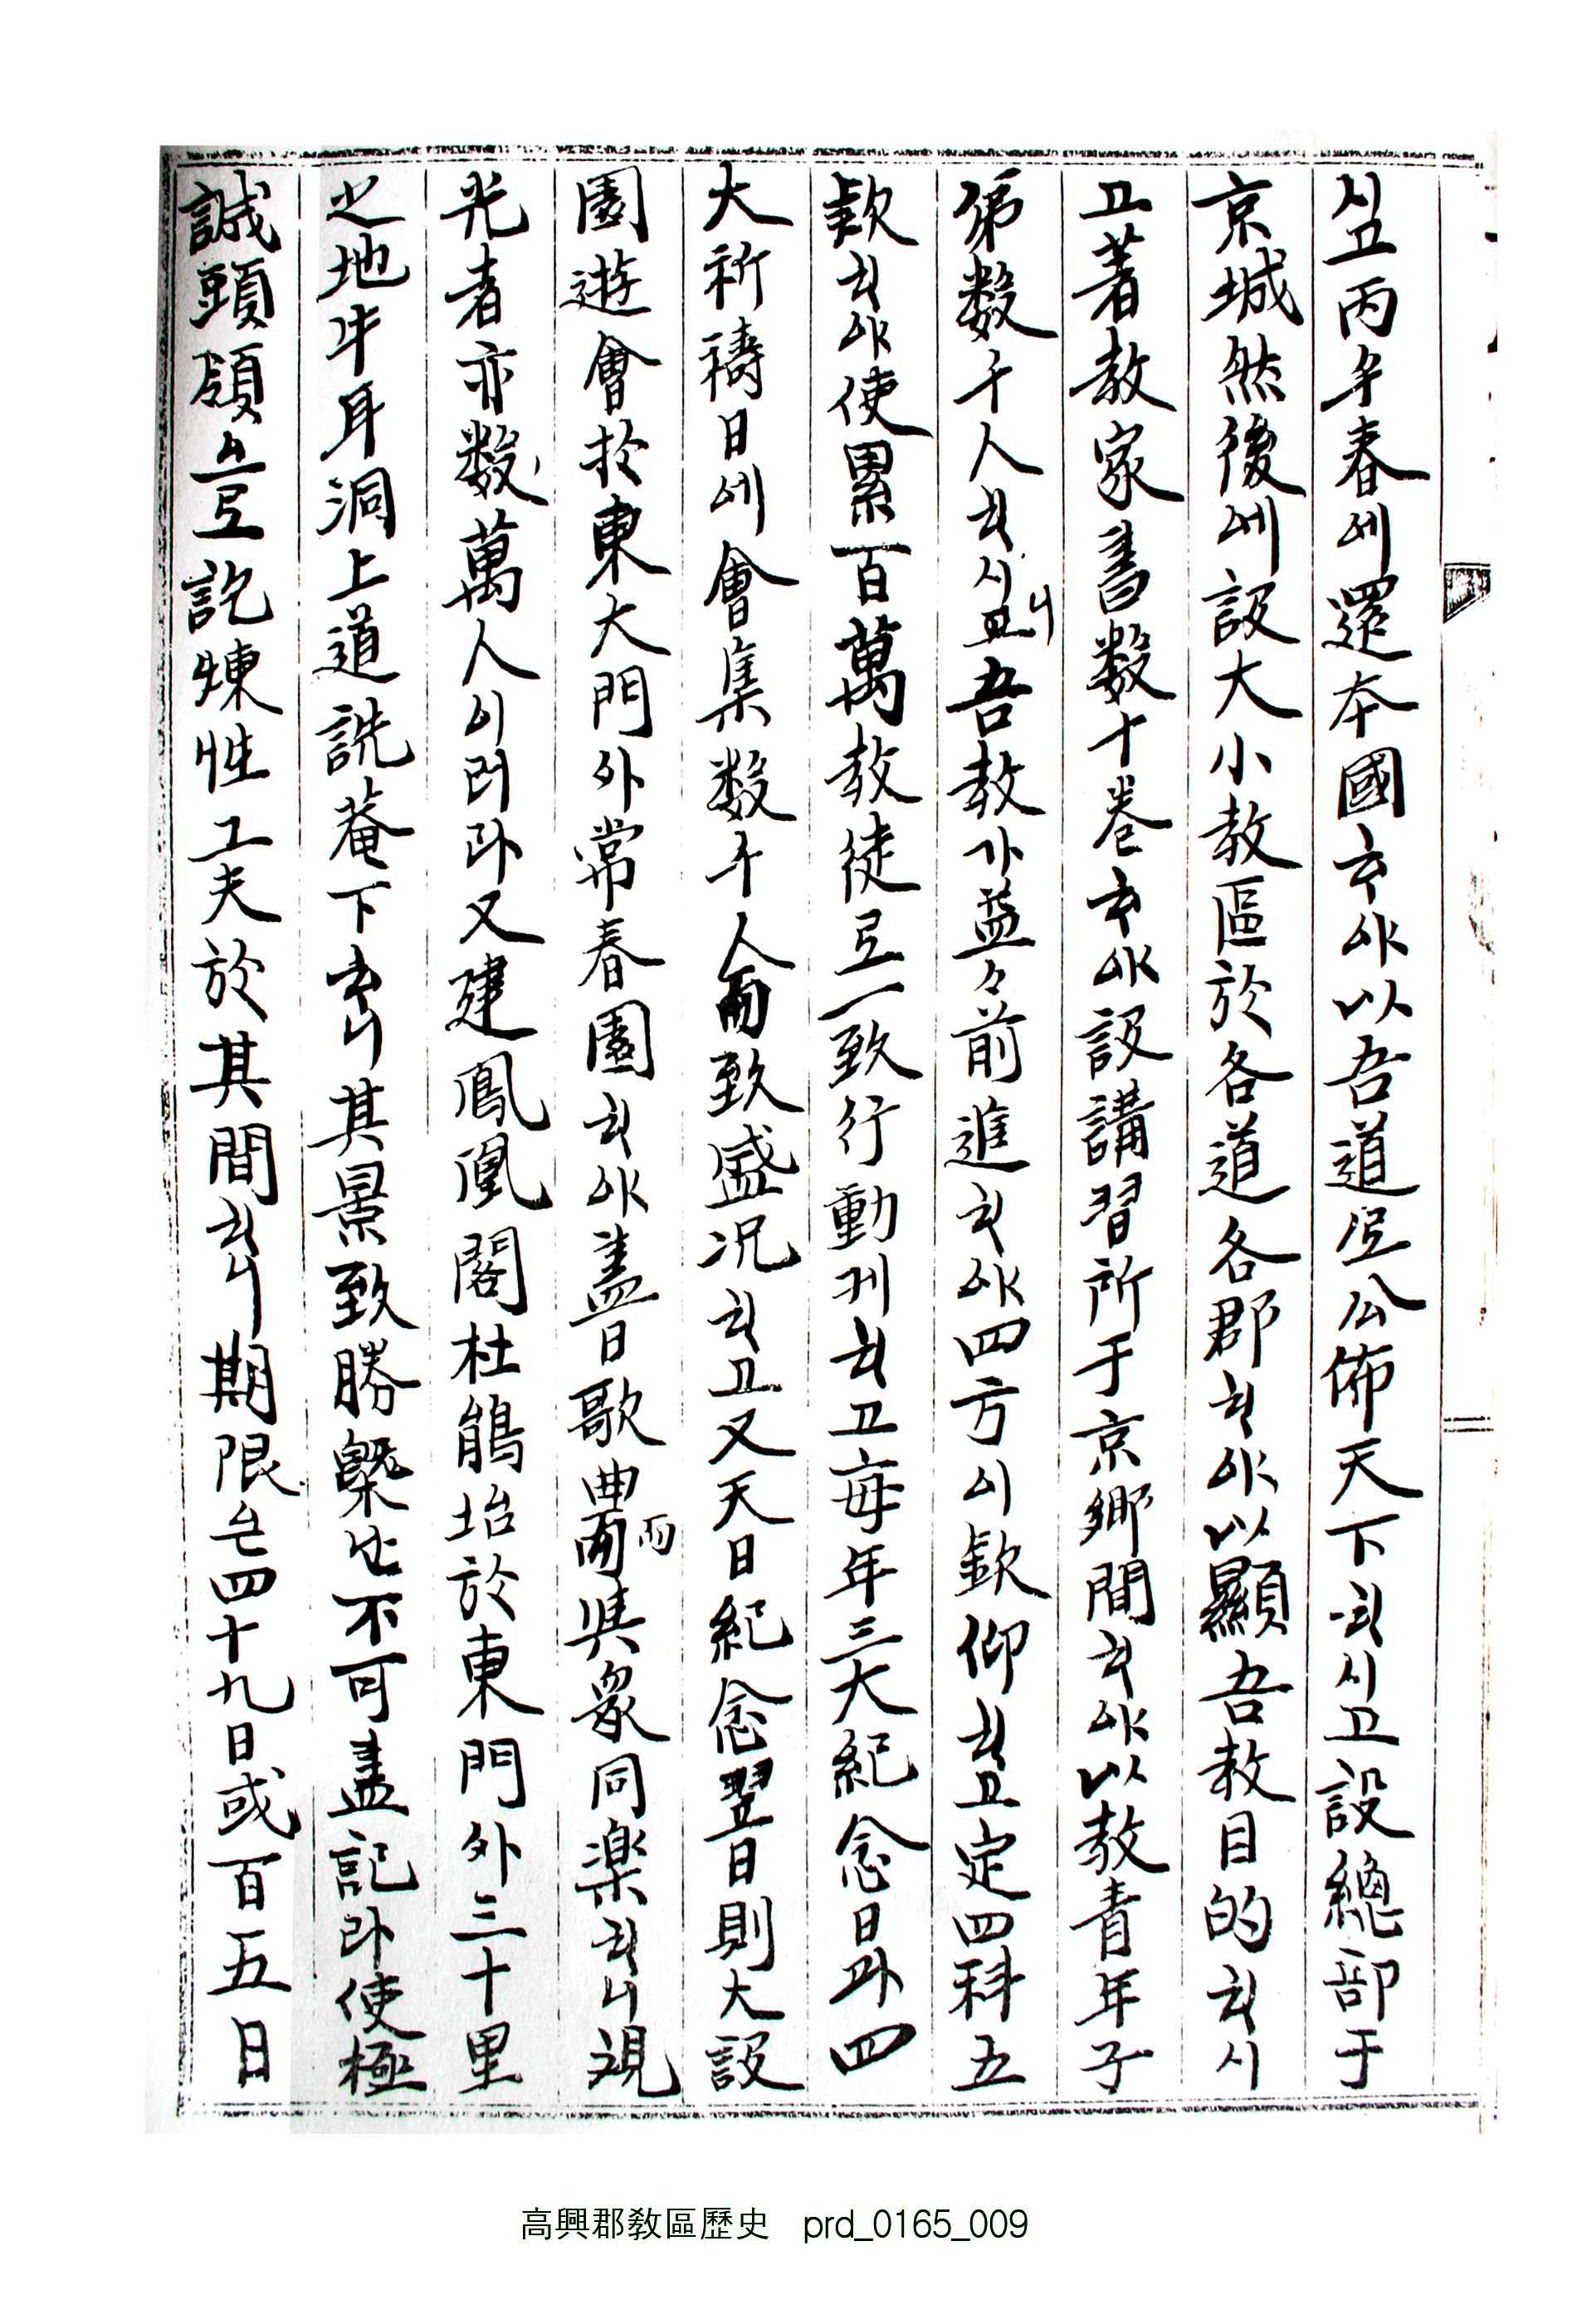 시고丙午春에還本國하야以吾道로公佈天下하시고設總部于
京城然後에設大小教區於各道各郡하야以顯吾教目的하시
고著教家書数十卷하야設講習所于京鄉間하야以教青年子
弟数千人하시고니吾教가益々前進하야四方이欽仰하고定四科五
款하야使累百萬教徒로一致行動케하고每年三大紀念日과四
大祈禱日에會集数千人而致盛况하고又天日紀念翌日則大設
園遊會於東大門外常春園하야盖日歌曲而與衆同楽하니觀
光者亦数萬人이러라又建鳳凰閣杜鵑坮於東門外三十里
之地牛耳洞上道詵菴下하니其景致勝槩는不可盡記라使極
誠頭領으로託煉性工夫於其間하니期限은四十九日或百五日
高興郡敎區歷史 prd_0165_009